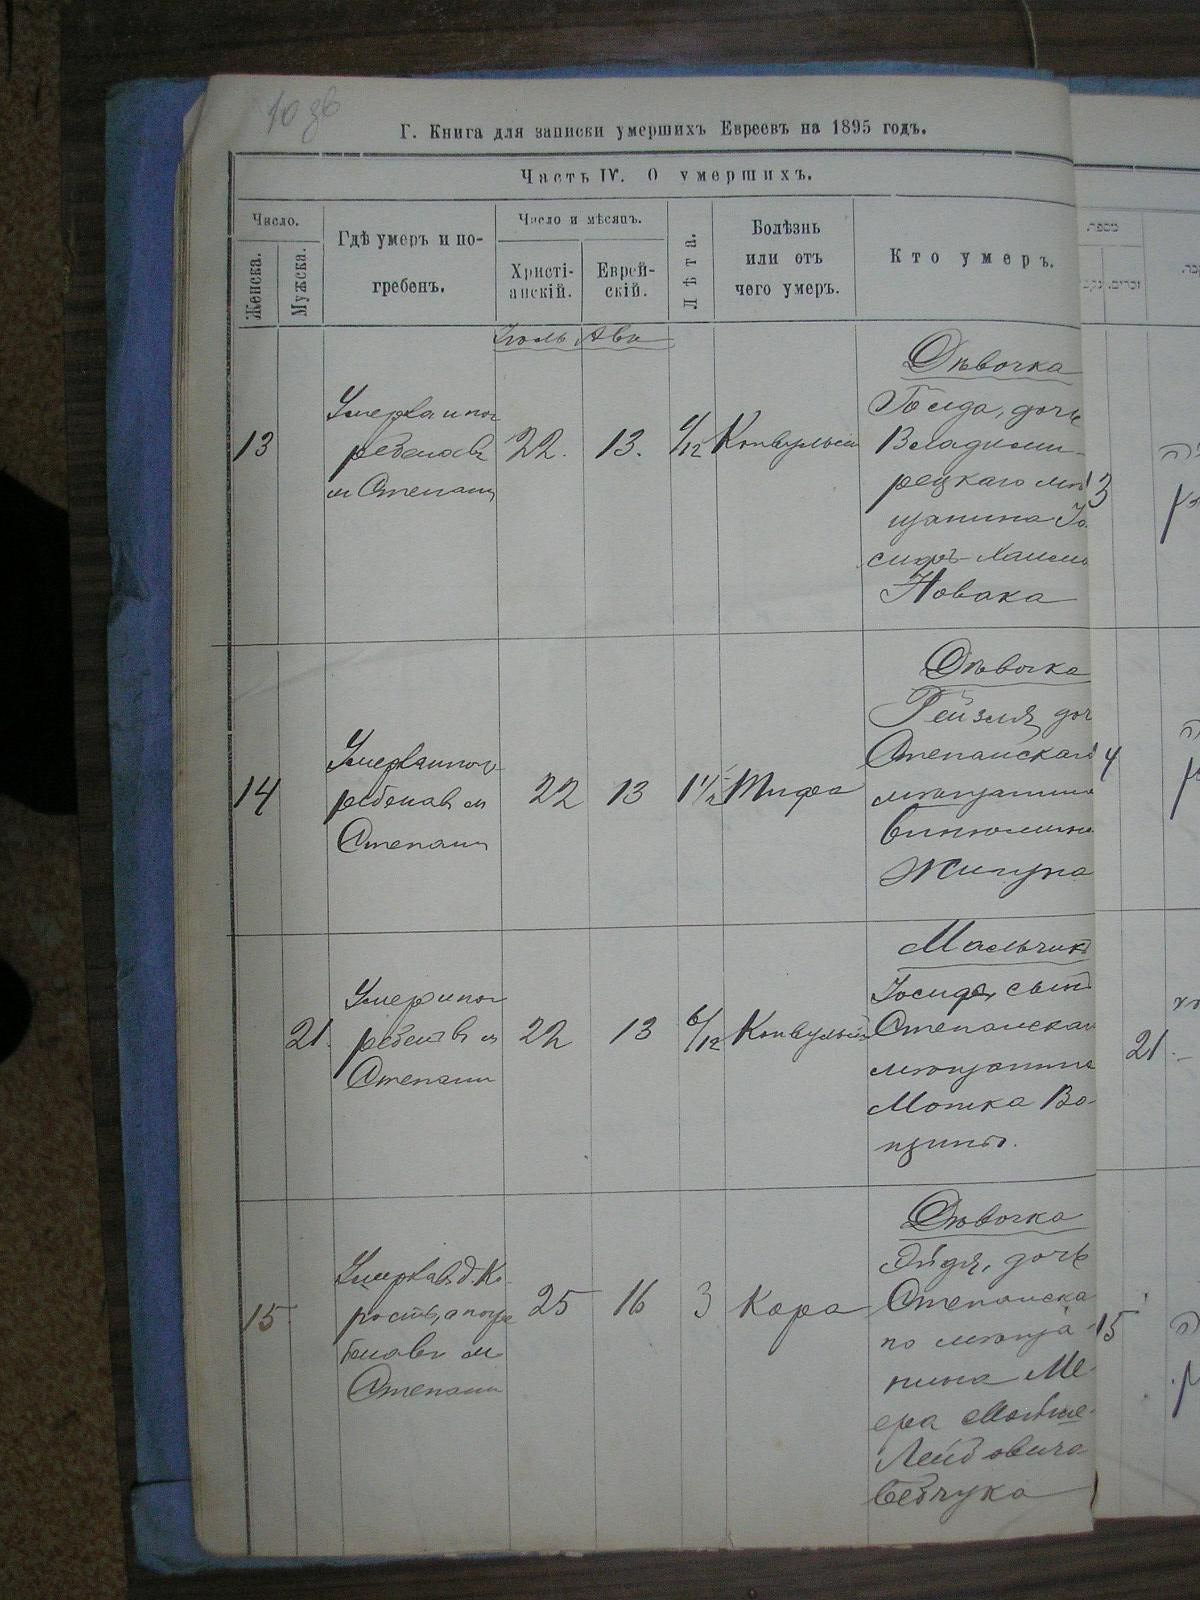 Г. Книга для записки умершихъ Евреевъ на 1895 годъ.
Часть IV. О умершихъ.
Число.
Женска.
Мужска.
Гдѣ умеръ и по-
гребенъ.
Число и мѣсяцъ.
Христі-
анскій.
Еврей-
скій.
Лѣта.
Болѣзнь
или отъ
чего умеръ.
Кто умеръ.
Іюль Ава
13
Умерла и пог
ребена въ
м Степани
22.
13.
6/12
Конвульсіи
Дѣвочка
дочь
Владими-
рецкаго мѣ
щанина Іо
сифъ-Хаима
Новака
14
Умерла и пог
ребена въ м
Степани
22
13
1 1/2
Тифа
Дѣвочка
Рейзля, доч
Степанскаго
мѣщанина
4
21.
Умеръ и пог
ребенъ въ м
Степани
22
13
6/12
Конвульсій
Мальчикъ
Іосифъ, сынъ
Степанскаго
мѣщанина
Мошка Во-
21.
15
Умерла въ д. Ко-
рость, а погре
бена въ м
Степани
25
16
3
Кора
Дѣвочка
дочь
Степанска
го мѣща-
нина Ме-
ера Мовше-
Лейбовича
Бебчука
15